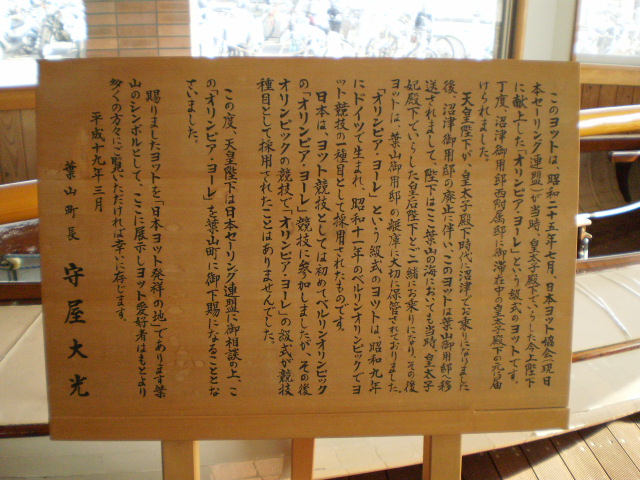 このヨットは、昭和二十五年七月、日本ヨット協会(現日
本セーリング連盟)が当時、皇太子殿下でいらした今上陛下
に献上した「オリンピア・ヨーレ」という級式のヨットです。
丁度、沼津御用邸西附属邸に御滞在中の皇太子殿下の元に届
けられました。
天皇陛下が、皇太子殿下時代、沼津でお乗りになりました
後、沼津御用邸の廃止に伴い、このヨットは葉山御用邸へ移
送されまして、陛下はここ葉山の海においても当時、皇太子
妃殿下でいらした皇后陛下とご一緒にお乗りになり、その後
ヨットは、葉山御用邸の艇庫に大切に保管されておりました。
「オリンピア・ヨーレ」という級式のヨットは、昭和九年
にドイツで生まれ、昭和十一年のベルリンオリンピックでヨ
ット競技の一種目として採用されたものです。
日本は、ヨット競技としては初めてベルリンオリンピック
の「オリンピア・ヨーレ」競技に参加しましたが、その後
オリンピックの競技で、「オリンピア・ヨーレ」の級式が競技
種目として採用されたことはありませんでした。
この度、天皇陛下は日本セーリング連盟に御相談の上、こ
の「オリンピア・ヨーレ」を葉山町に御下賜になることとな
っていました。
賜りましたヨットを「日本ヨット発祥の地」であります葉
山のシンボルとして、ここに展示しヨット愛好者はもとより
多くの方々にご覧いただければ幸いに存じます。
平成十九年三月
葉山町長 守屋大光